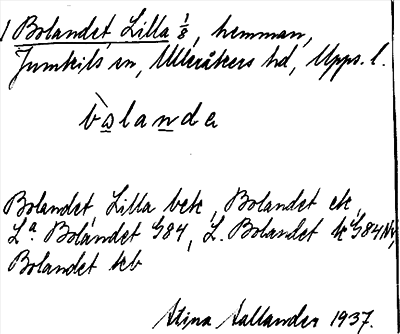 1 Bolandet Lilla 1/8, hemman,
Jumkils sn, Ulleråkers hd, Upps. l.
bòlandə
Bolandet, Lilla bek, Bolandet ek,
La. Bolandet G84, L. Bolandet tk G84 Nv,
Bolandet keb
Stina Sallander 1937.